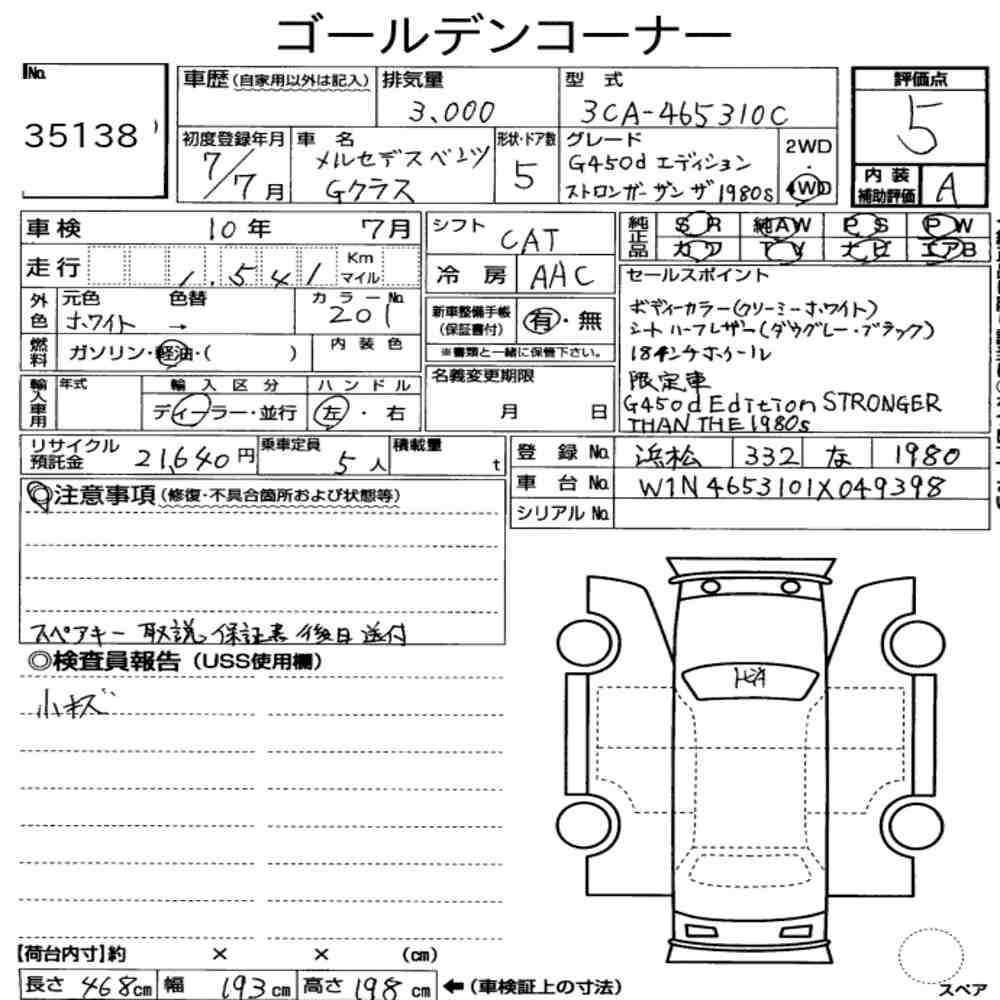 ゴールデンコーナー
No.
35138
車歴(自家用以外は記入)
排気量
3,000
型式
3CA-465310C
評価点
5
内装
補助評価
A
初度登録年月
7/7月
車名
メルセデスベンツ
Gクラス
形状・ドア数
5
グレード
G450d エディション
ストロンガーザンザ1980s
2WD
・
4WD
車検 10年 7月
走行 1,541 Km マイル
外色
元色
ホワイト
色替
→
カラーNo.
201
燃料
ガソリン・軽油・( )
内装色
輸入車用
年式
輸入区分
ディーラー・並行
ハンドル
左・右
シフト
CAT
冷房
AAC
新車整備手帳
(保証書付)
有・無
※書類と一緒に保管下さい。
名義変更期限
月 日
純正品
SR 純AW PS PW
カワ TV ナビ エアB
セールスポイント
ボディーカラー(クリーミーホワイト)
シートハーフレザー(ダウグレー・ブラック)
18インチホイール
限定車
G450d Edition STRONGER
THAN THE 1980s
リサイクル
預託金
21,640円
乗車定員
5人
積載量
t
登録No. 浜松 332 な 1980
車台No. W1N4653101X049398
シリアルNo.
◎注意事項(修復・不具合箇所および状態等)
スペアキー 取説 保証書 後日送付
◎検査員報告(USS使用欄)
小キズ
スペア
【荷台内寸】約 × × (cm)
長さ 468cm 幅 193cm 高さ 198cm ←(車検証上の寸法)